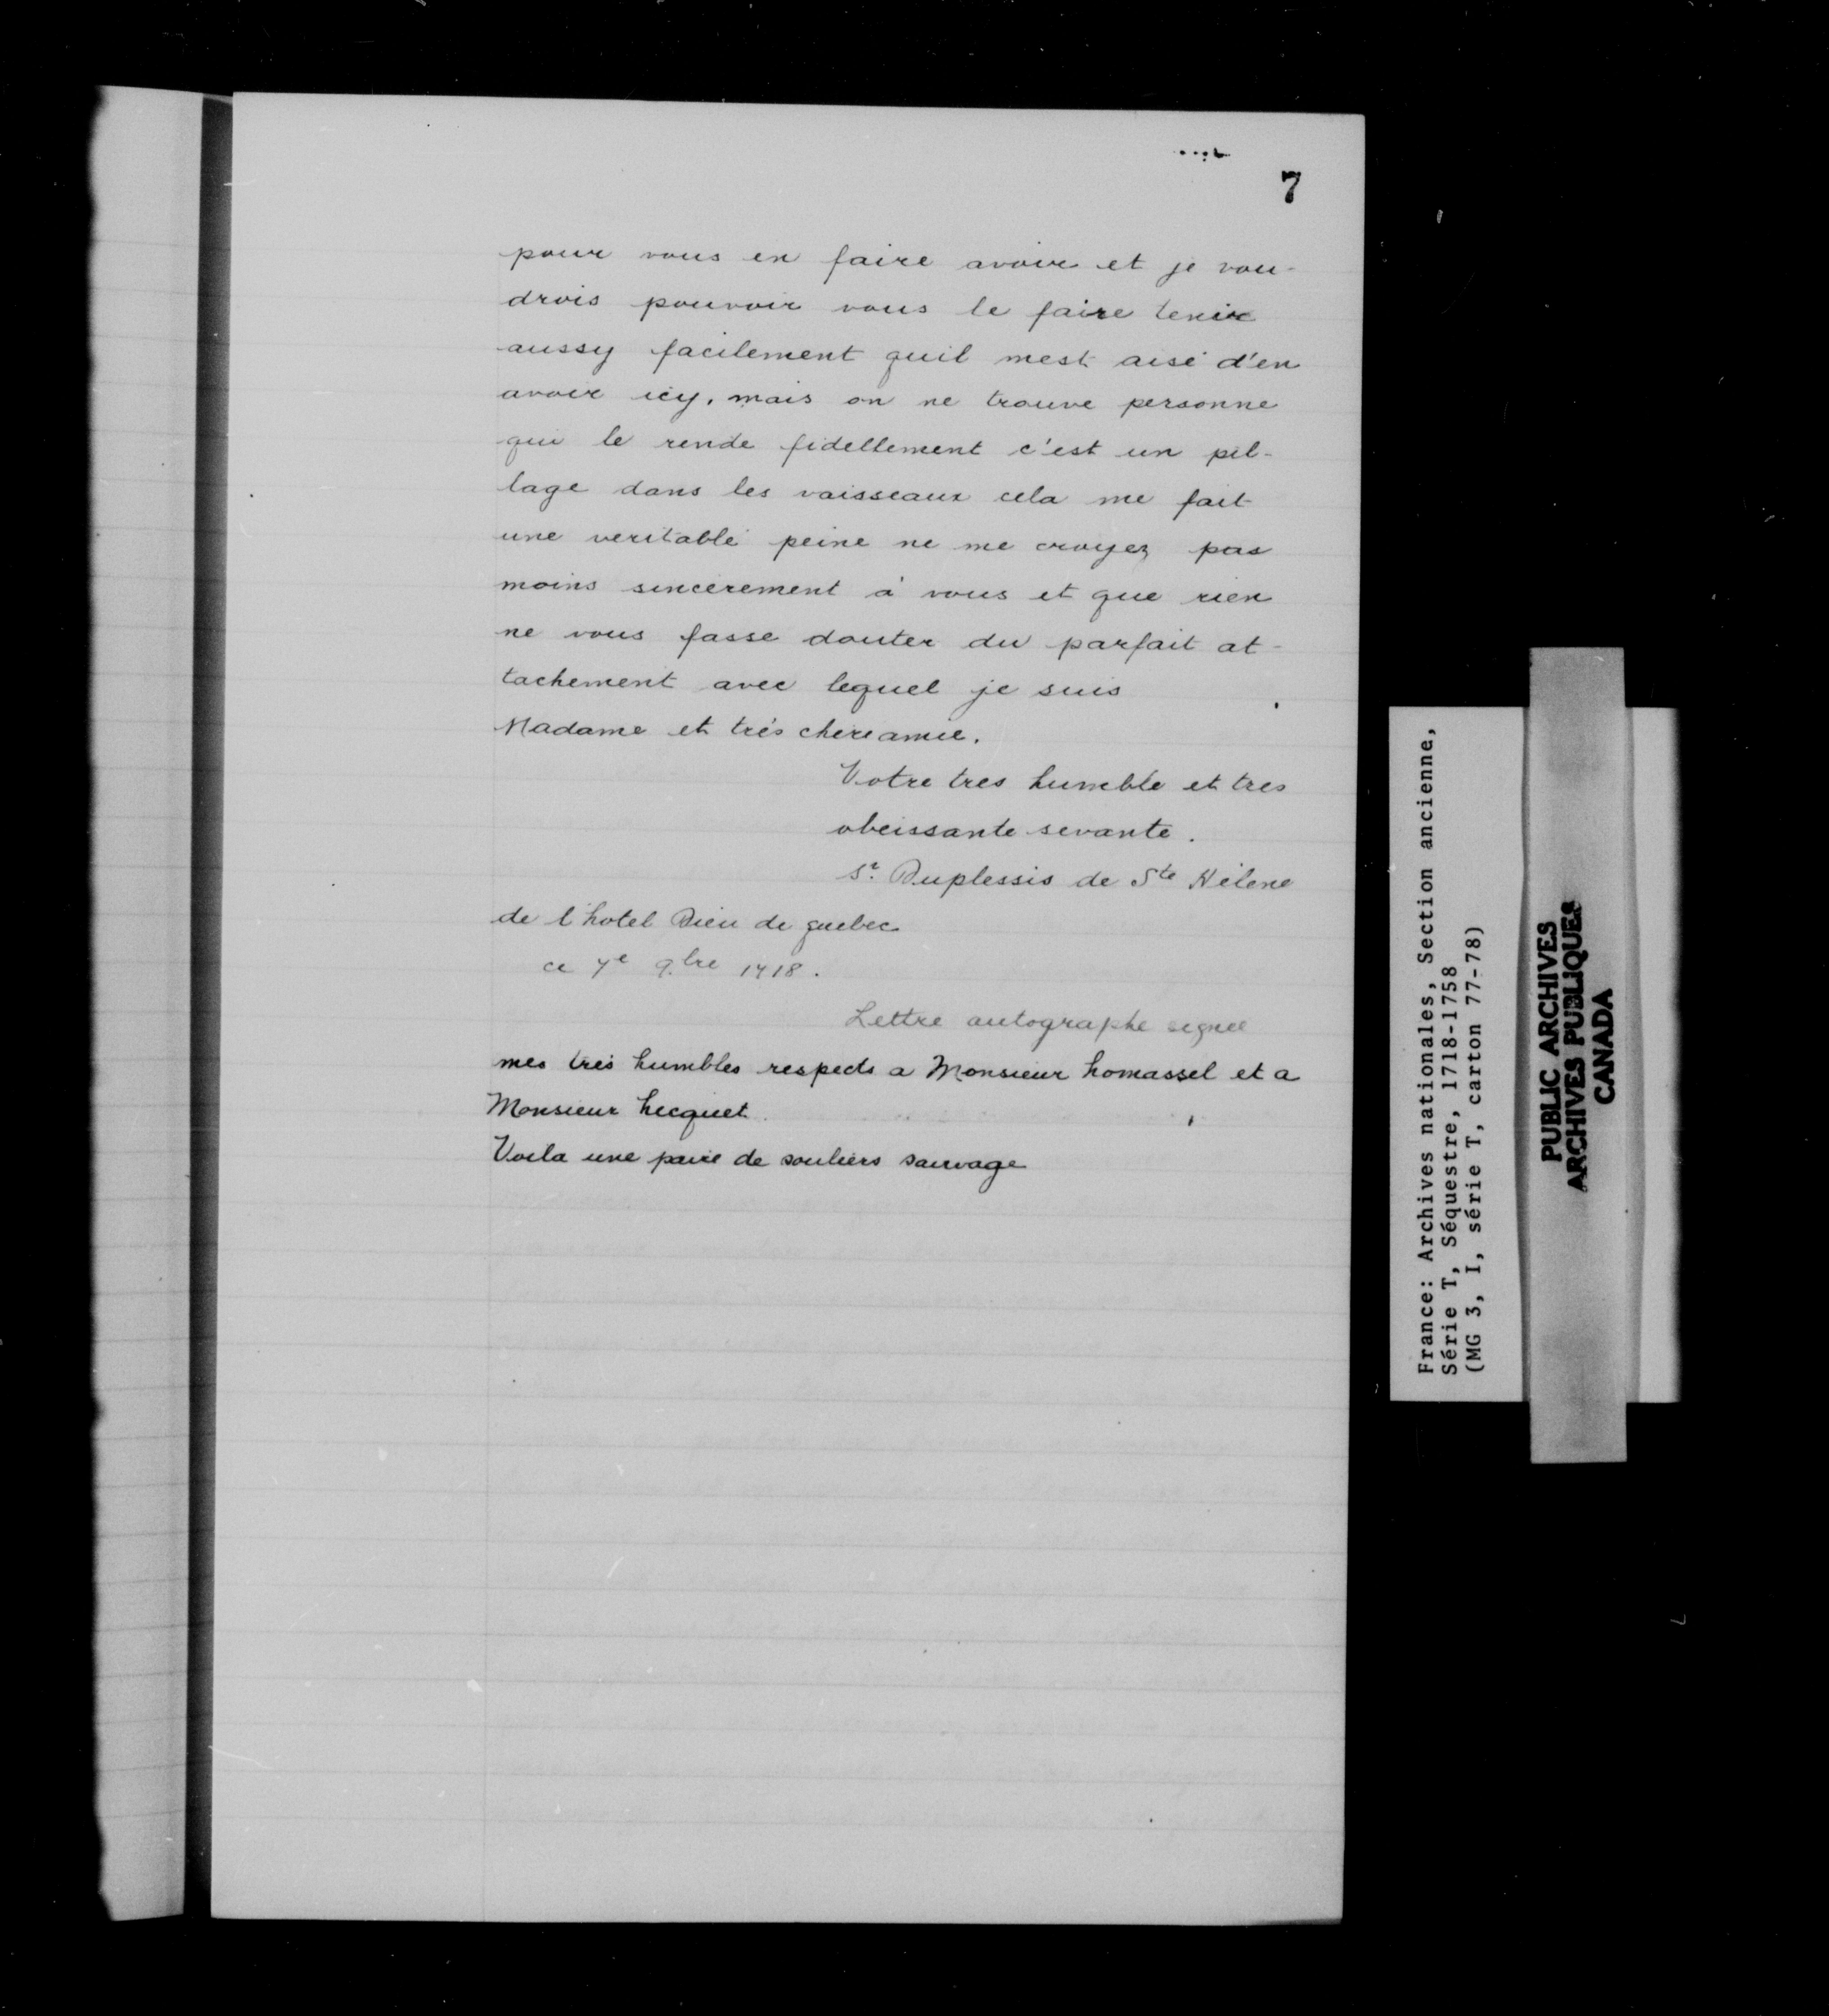 7
pour vous en faire avoir et je vou-
drois pouvoir vous le faire tenir
aussy facilement quil mest aisé d'en
avoir icy, mais on ne trouve personne
qui le rende fidellement c'est un pil-
lage dans les vaisseaux cela me fait
une veritable peine ne me croyez pas
moins sincerement à vous et que rien
ne vous fasse douter du parfait at-
tachement avec lequel je suis
Madame et trés chere amie.
Votre tres humble et tres
obeissante sevante.
Sr. Duplessis de Ste Hélene
de l'hotel Dieu de quebec
ce 7e 9.bre 1718.
Lettre autographe signée
mes tres humbles respects a Monsieur homassel et a
Monsieur hecquet.
Voila une paire de souliers sauvage
France: Archives nationales, Section ancienne,
Série T, Séquestre, 1718-1758
(MG 3, I, série T, carton 77-78)
PUBLIC ARCHIVES
ARCHIVES PUBLIQUES
CANADA